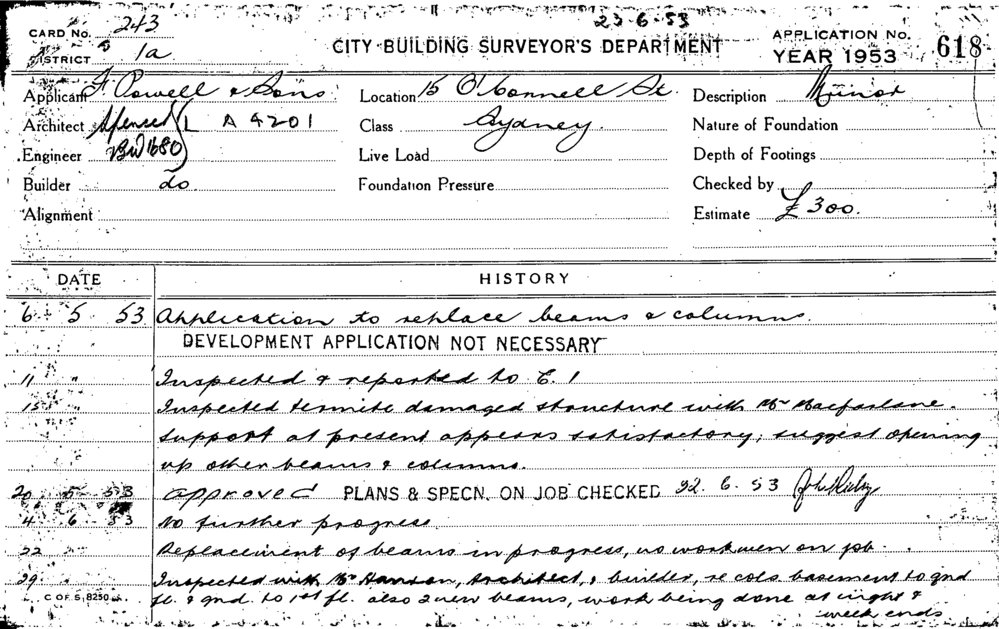 23-6-53
CARD No. 243
DISTRICT 1a
CITY BUILDING SURVEYOR'S DEPARTMENT
APPLICATION No. 618
YEAR 1953
Applicant F. Powell & Sons
Location 15 O'Connell St.
Description Minor
Architect Spencer L A 4201
Class Sydney.
Nature of Foundation
Engineer BW 1680
Live Load
Depth of Footings
Builder do
Foundation Pressure
Checked by
Alignment
Estimate £300.
DATE HISTORY
6 5 53 Application to replace beams & columns.
DEVELOPMENT APPLICATION NOT NECESSARY
11 " Inspected & reported to C. I
15 Inspected termite damaged structure with Mr Macfarlane.
Support at present appears satisfactory, suggest opening
up other beams & columns.
20 5 53 approved PLANS & SPECN. ON JOB CHECKED 22. 6. 53
4 6 53 No further progress.
22 Replacement of beams in progress, no workmen on job.
29 Inspected with Mr Hanson, Architect, & builder, re cols. basement to gnd
C OF S, 8250 fl. & gnd. to 1st fl. also 2 new beams, work being done at night &
week ends